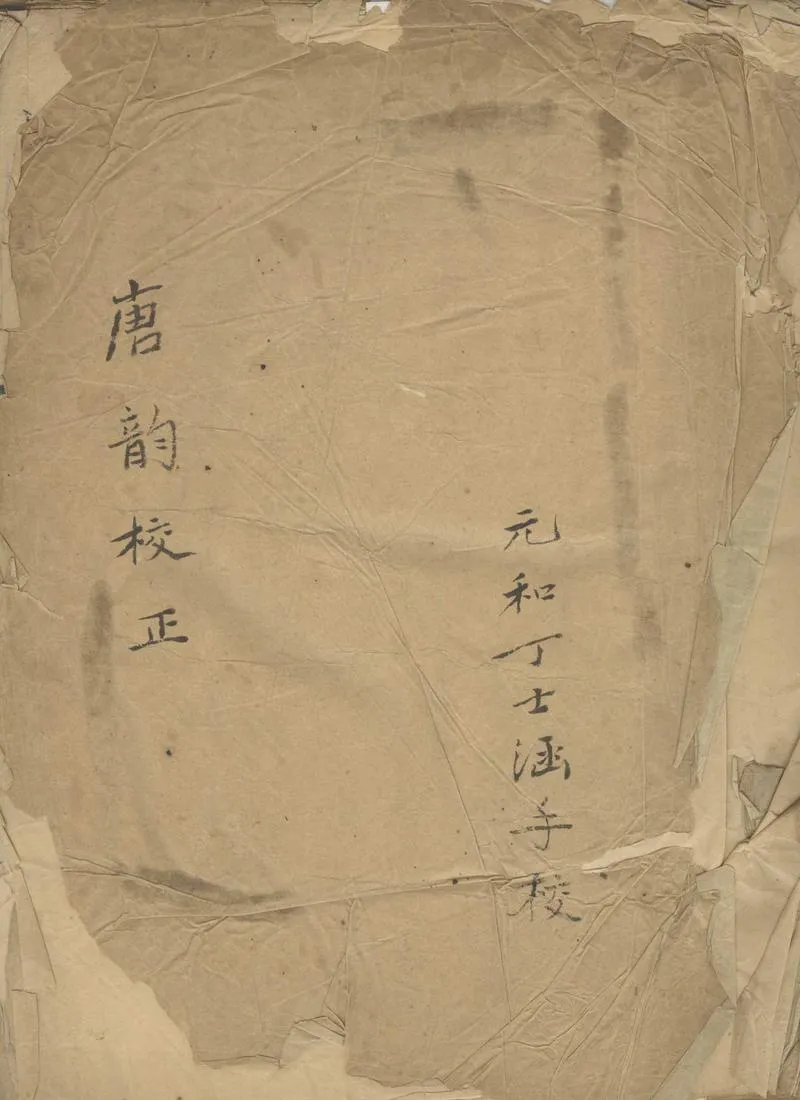 元和丁士涵手校
唐韵校正